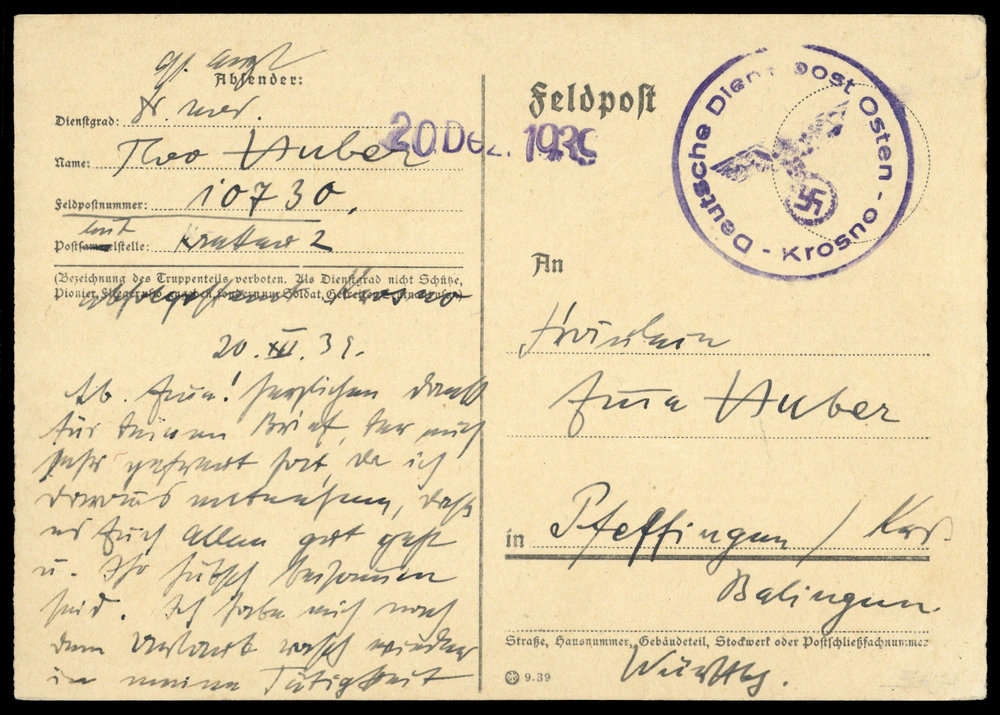 Absender:
Dienstgrad: Dr. med.
Name: Theo Huber
Feldpostnummer: 10730,
mit
Postsammelstelle: 2
(Bezeichnung des Truppenteils verboten. Als Dienstgrad nicht Schütze,
Pionier, Soldat,
20. XII. 39.
Lb. Emma! Herzlichen Dank
für Deinen Brief, der mich
sehr gefreut hat, da ich
daraus entnehme, daß
es Euch Allen gut geht
u. Ihr hübsch beisammen
seid. Ich habe mich nach
dem Urlaub rasch wieder
in meine Tätigkeit
20. Dez. 1939
Feldpost
Deutsche Dienstpost Osten - Krosno -
An
Fräulein
Emma Huber
in Pfeffingen / Krs.
Balingen.
Straße, Hausnummer, Gebäudeteil, Stockwerk oder Postschließfachnummer
Württbg.
9.39